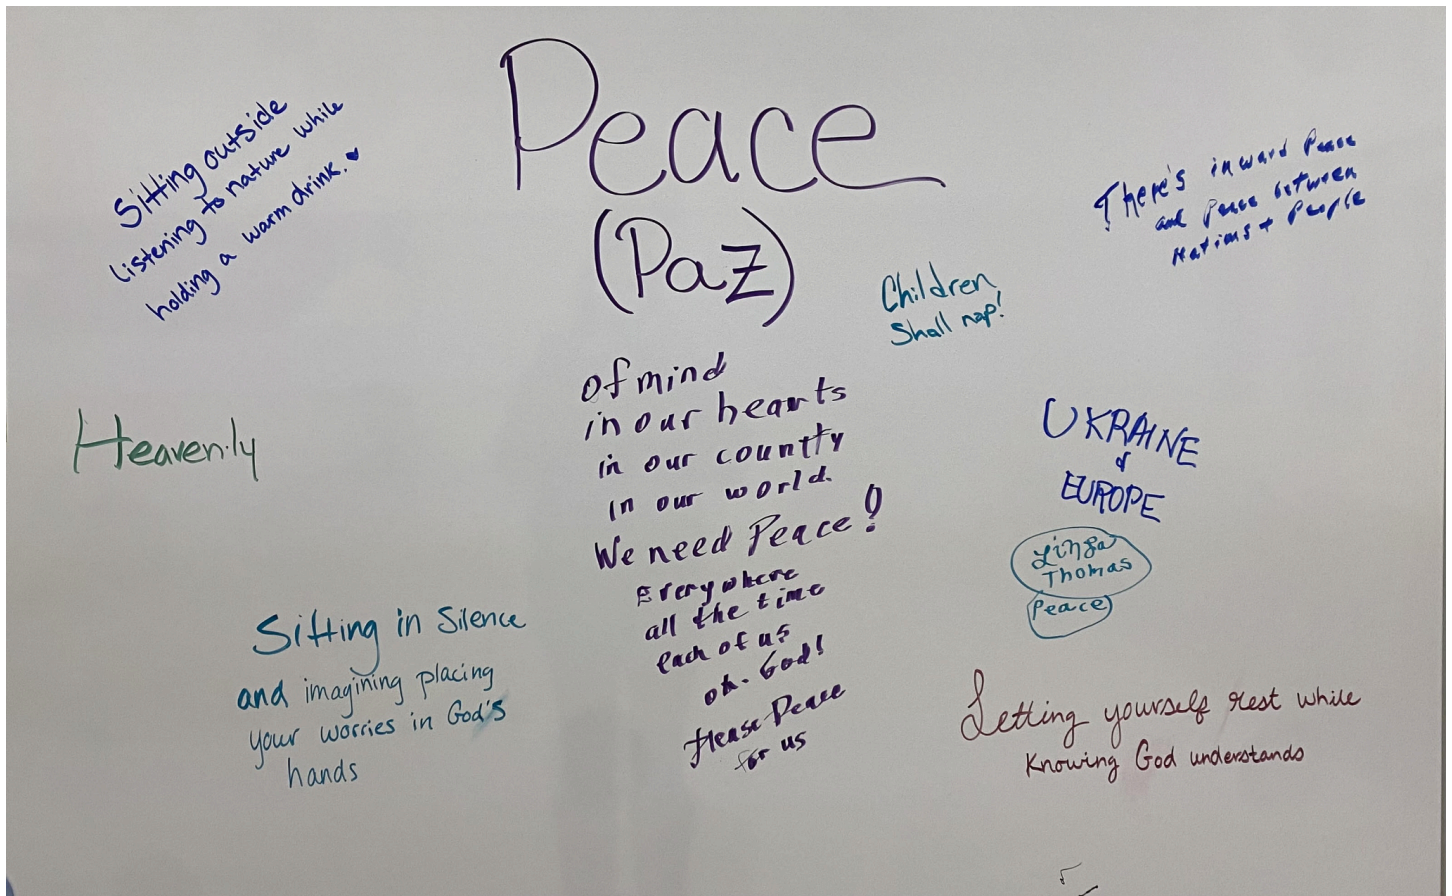 Peace
(Paz)
Sitting outside
listening to nature while
holding a warm drink. ♥
There's inward Peace
and Peace between
Nations + People
Children
Shall nap!
of mind
in our hearts
in our country
in our world.
We need Peace!
Everywhere
all the time
each of us
oh. God!
Please Peace
for us
Heavenly
UKRAINE
&
EUROPE
Thomas
Peace
Sitting in Silence
and imagining placing
your worries in God's
hands
Letting yourself rest while
Knowing God understands